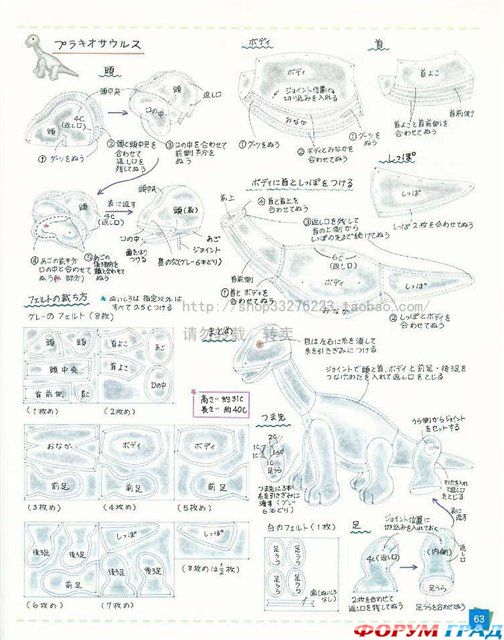 ブラキオサウルス
頭
頭中央
返し口
頭
4C
(返し口)
口の中
①ダーツをぬう
②頭と頭中央を
合わせて
返し口を
残してぬう
③口の中を合わせて
前側半分を
ぬう
表に返す
4C
(返し口)
頭中央
頭(表)
口の中
あご
ジョイント
④あごの前半分
口の中と合わせて
ぬう
ボディ
ボディ
ジョイント位置に
切り込みを入れる
おなか
①ダーツをぬう
②ボディとおなかを
合わせてぬう
首
首よこ
首前側
①ダーツを
ぬう
②首よこと首前側を
合わせてぬう
しっぽ
しっぽ
しっぽ2枚を合わせてぬう
ボディに首としっぽをつける
前上
④首と首上を
合わせてぬう
③返し口を残して
首の上側から
しっぽの先まで続けてぬう
6C
(返し口)
首前側
しっぽ
①首とボディを
合わせてぬう
おなか
②しっぽとボディを
ぬう
http://shop33276223.taobao.com
请勿转载、转卖
フェルトの裁ち方
ぬいしろは指定以外は
すべて0.5Cつける
グレーのフェルト(8枚)
頭
首よこ
頭中央
首前側
首
(1枚め)
首よこ
あご
頭
口の中
(2枚め)
おなか
前足
(3枚め)
ボディ
前足
(4枚め)
ボディ
前足
(5枚め)
後ろ足
後ろ足
前足
(6枚め)
しっぽ
後ろ足
(7枚め)
しっぽ
(8枚めは1/2枚)
まとめ
目は左右に糸を渡して
糸を引きぎみにつける
ジョイントで頭と首、ボディと前足・後ろ足を
つないでわたを入れて返し口をとじる
高さ…約31C
長さ…約40C
つま先
2C
1C
1C
足うら
うら側からジョイント
をセットする
わたを入れ
返し口を
とじる
表に
返す
白のフェルト(1枚)
足うら
足うら
足うら
足うら
足
ジョイント位置に
切り込みを入れておく
4C(返し口)
(内側)
返し口
足うら
2枚を合わせて
返し口を残してぬう
足うらを合わせてぬう
63
ФОРУМ ГРАД